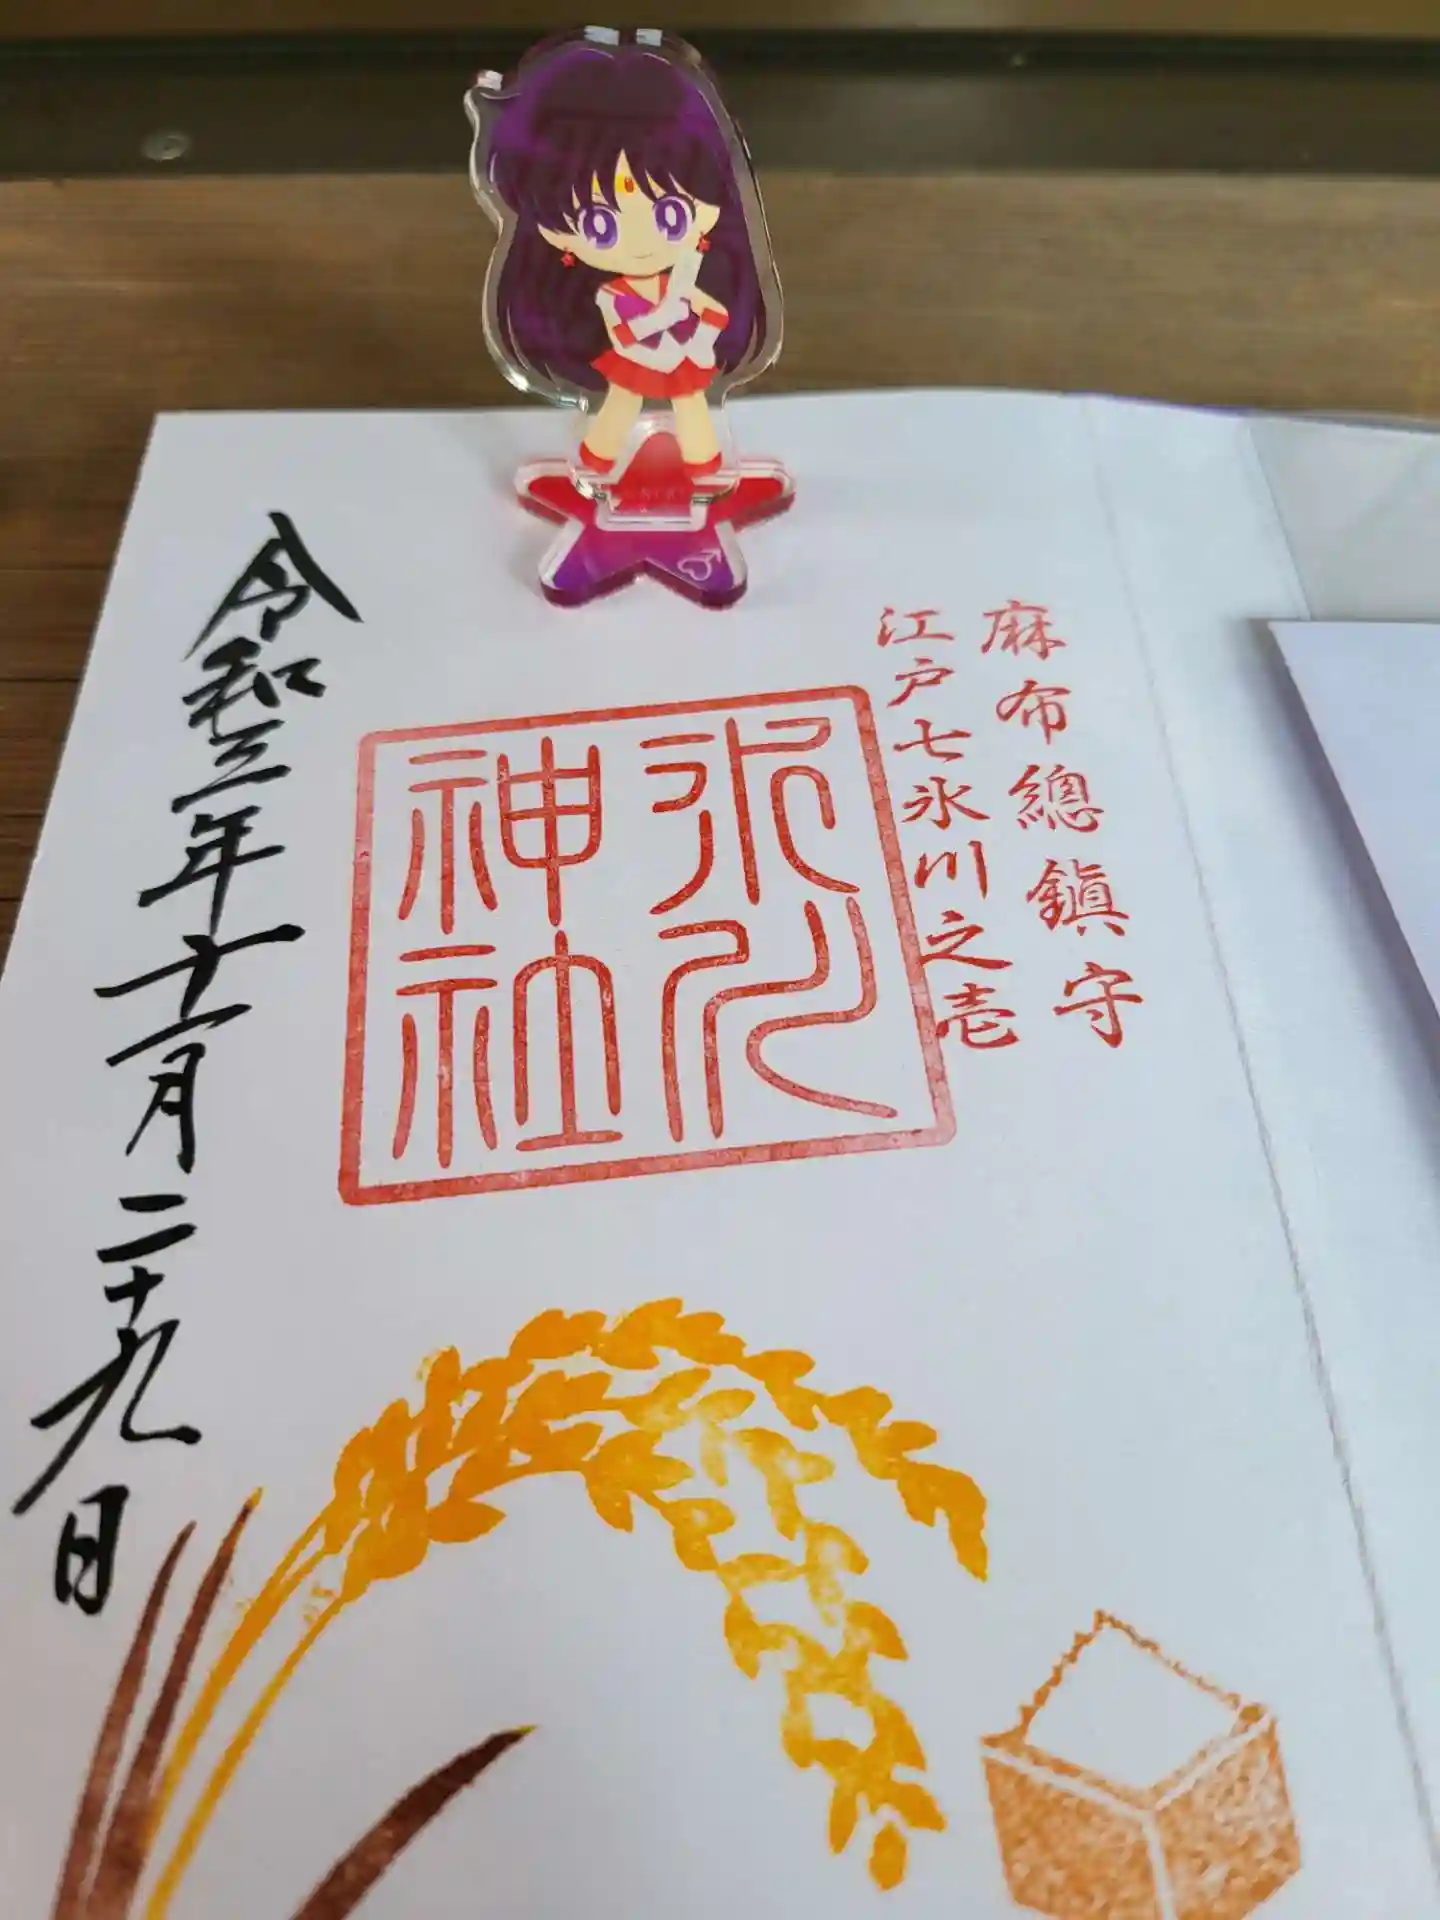 麻布總鎭守
江戸七氷川之壱
氷川
神社
令和三年十一月二十九日